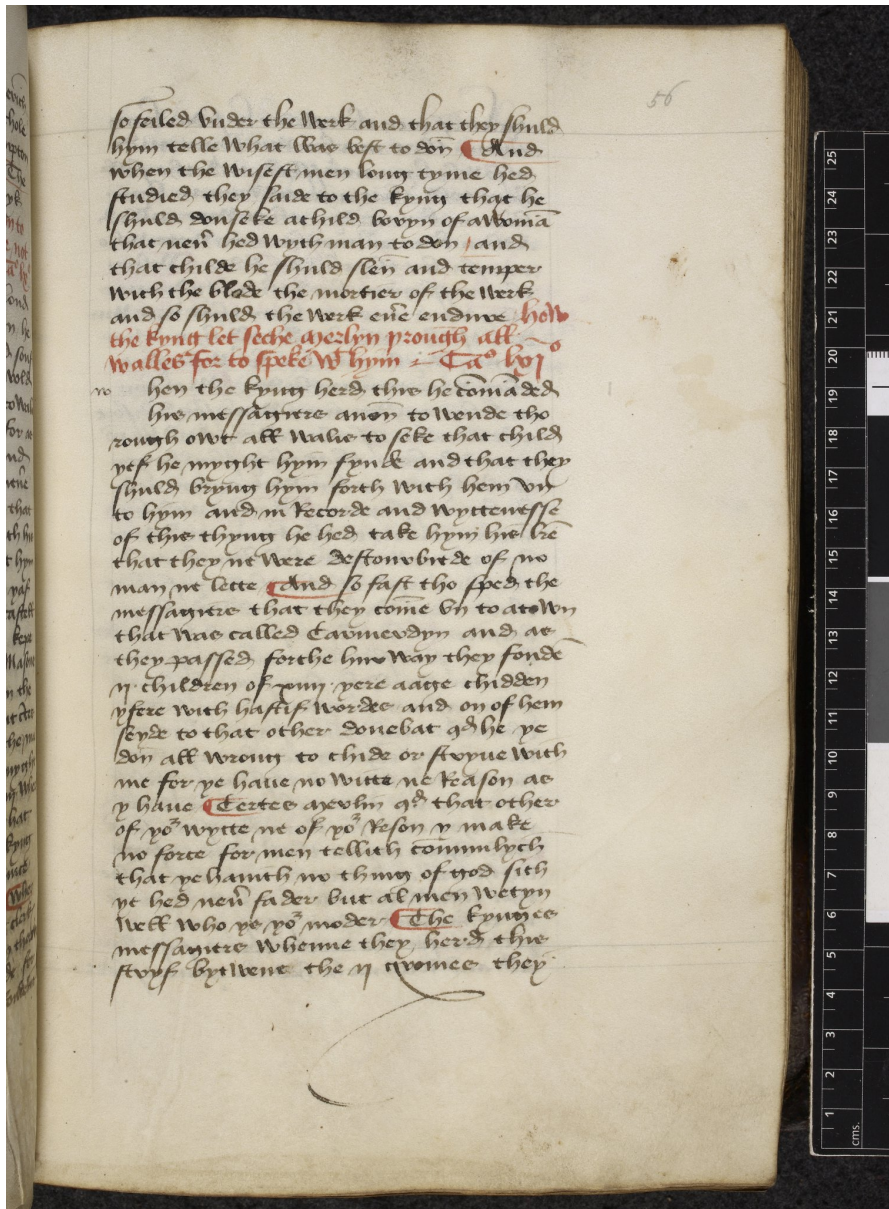 56
so feiled vnder the werk and that they shuld
hym telle what was best to don And
when the wisest men long tyme hed
studied they saide to the kyng that he
shuld don seke a child boryn of a womā
that neu̾ hed wyth man to don / and
that childe he shuld slen and temper
with the blode the mortier of the werk
and so shuld the werk eu̾e endure how
the kyng let seche Merlyn þrough all
walles for to speke wt hym Cao lvjo
w hen the kyng herd this he com̄āded
his messagiers anon to wende tho
rough owt all walis to seke that child
yef he myght hym fynde and that they
shuld bryng hym forth with hem vn
to hym and in Recorde and wyttenesse
of this thyng he hed take hym his lr̄e
that they ne were destourbide of no
man ne lette And so fast tho sped the
messagiers that they come vn to a town
that was called Carmerdyn and as
they passed forthe hur way they fonde
ij children of xiiij yere aage chidden
yfere with hastif wordes and on of hem
seyde to that other donebat qd he ye
don all wrong to chide or stryue with
me for ye haue no witte ne Reason as
y haue Certes Merlin qd that other
of yor wytte ne of yor Reson y make
no force for men tellith commlych
that ye haueth no thing of god sith
ye hed neu̾ fader but al men wetyn
well who ys yor moder The kynges
messagiers whenne they herd this
stryf bytwene the ij gromes they